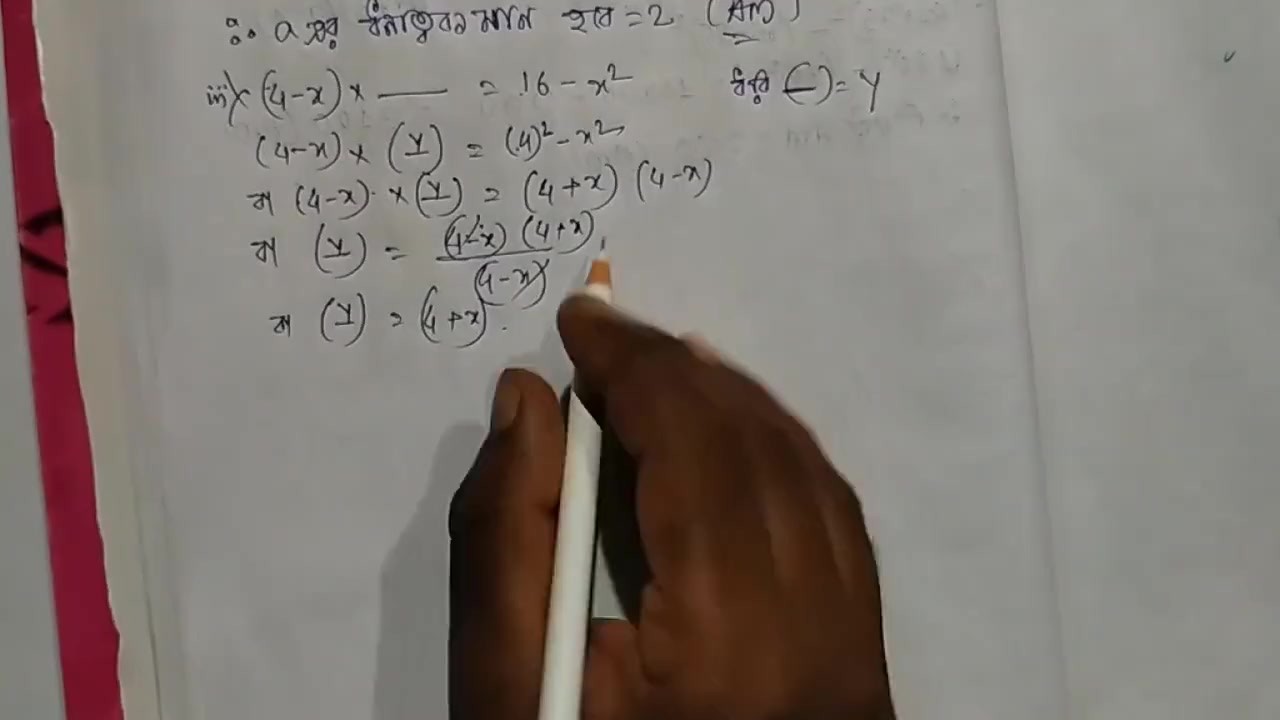 ∴ a এর ধনাত্বক মান হবে = 2 (Ans)
iii) (4-x) × ____ = 16 - x² ধরি (—) = y
(4-x) × (y) = (4)² - x²
বা (4-x) × (y) = (4+x) (4-x)
বা (y) = (4-x) (4+x) / (4-x)
বা (y) = (4+x).